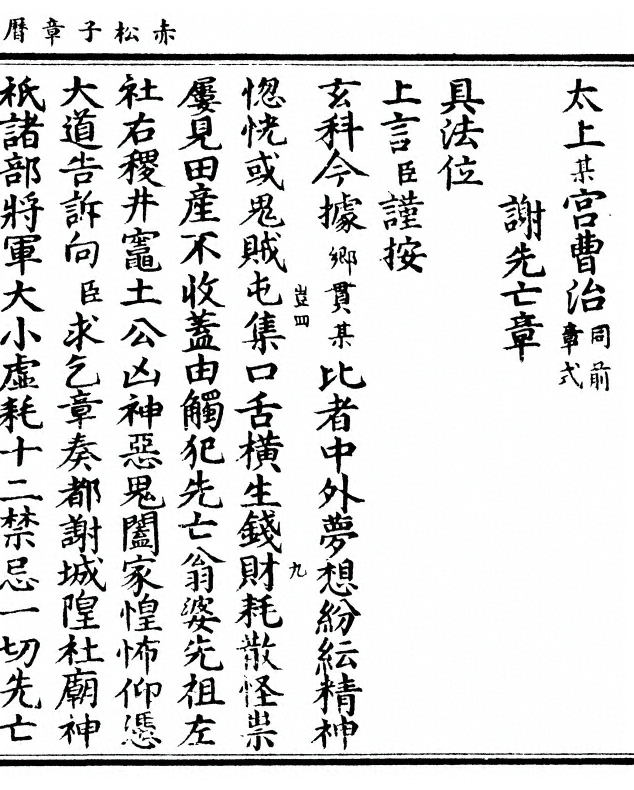 赤松子章曆
太上某宮曹治同前章式
謝先亡章
具法位
上言臣謹按
玄科今據鄉貫某比者中外夢想紛紜精神
惚恍或鬼賊屯集口舌橫生錢財耗散怪祟
豈四
九
屢見田產不收蓋由觸犯先亡翁婆先祖左
社右稷井竈土公凶神惡鬼闔家惶怖仰憑
大道告訴向臣求乞章奏都謝城隍社廟神
祇諸部將軍大小虛耗十二禁忌一切先亡